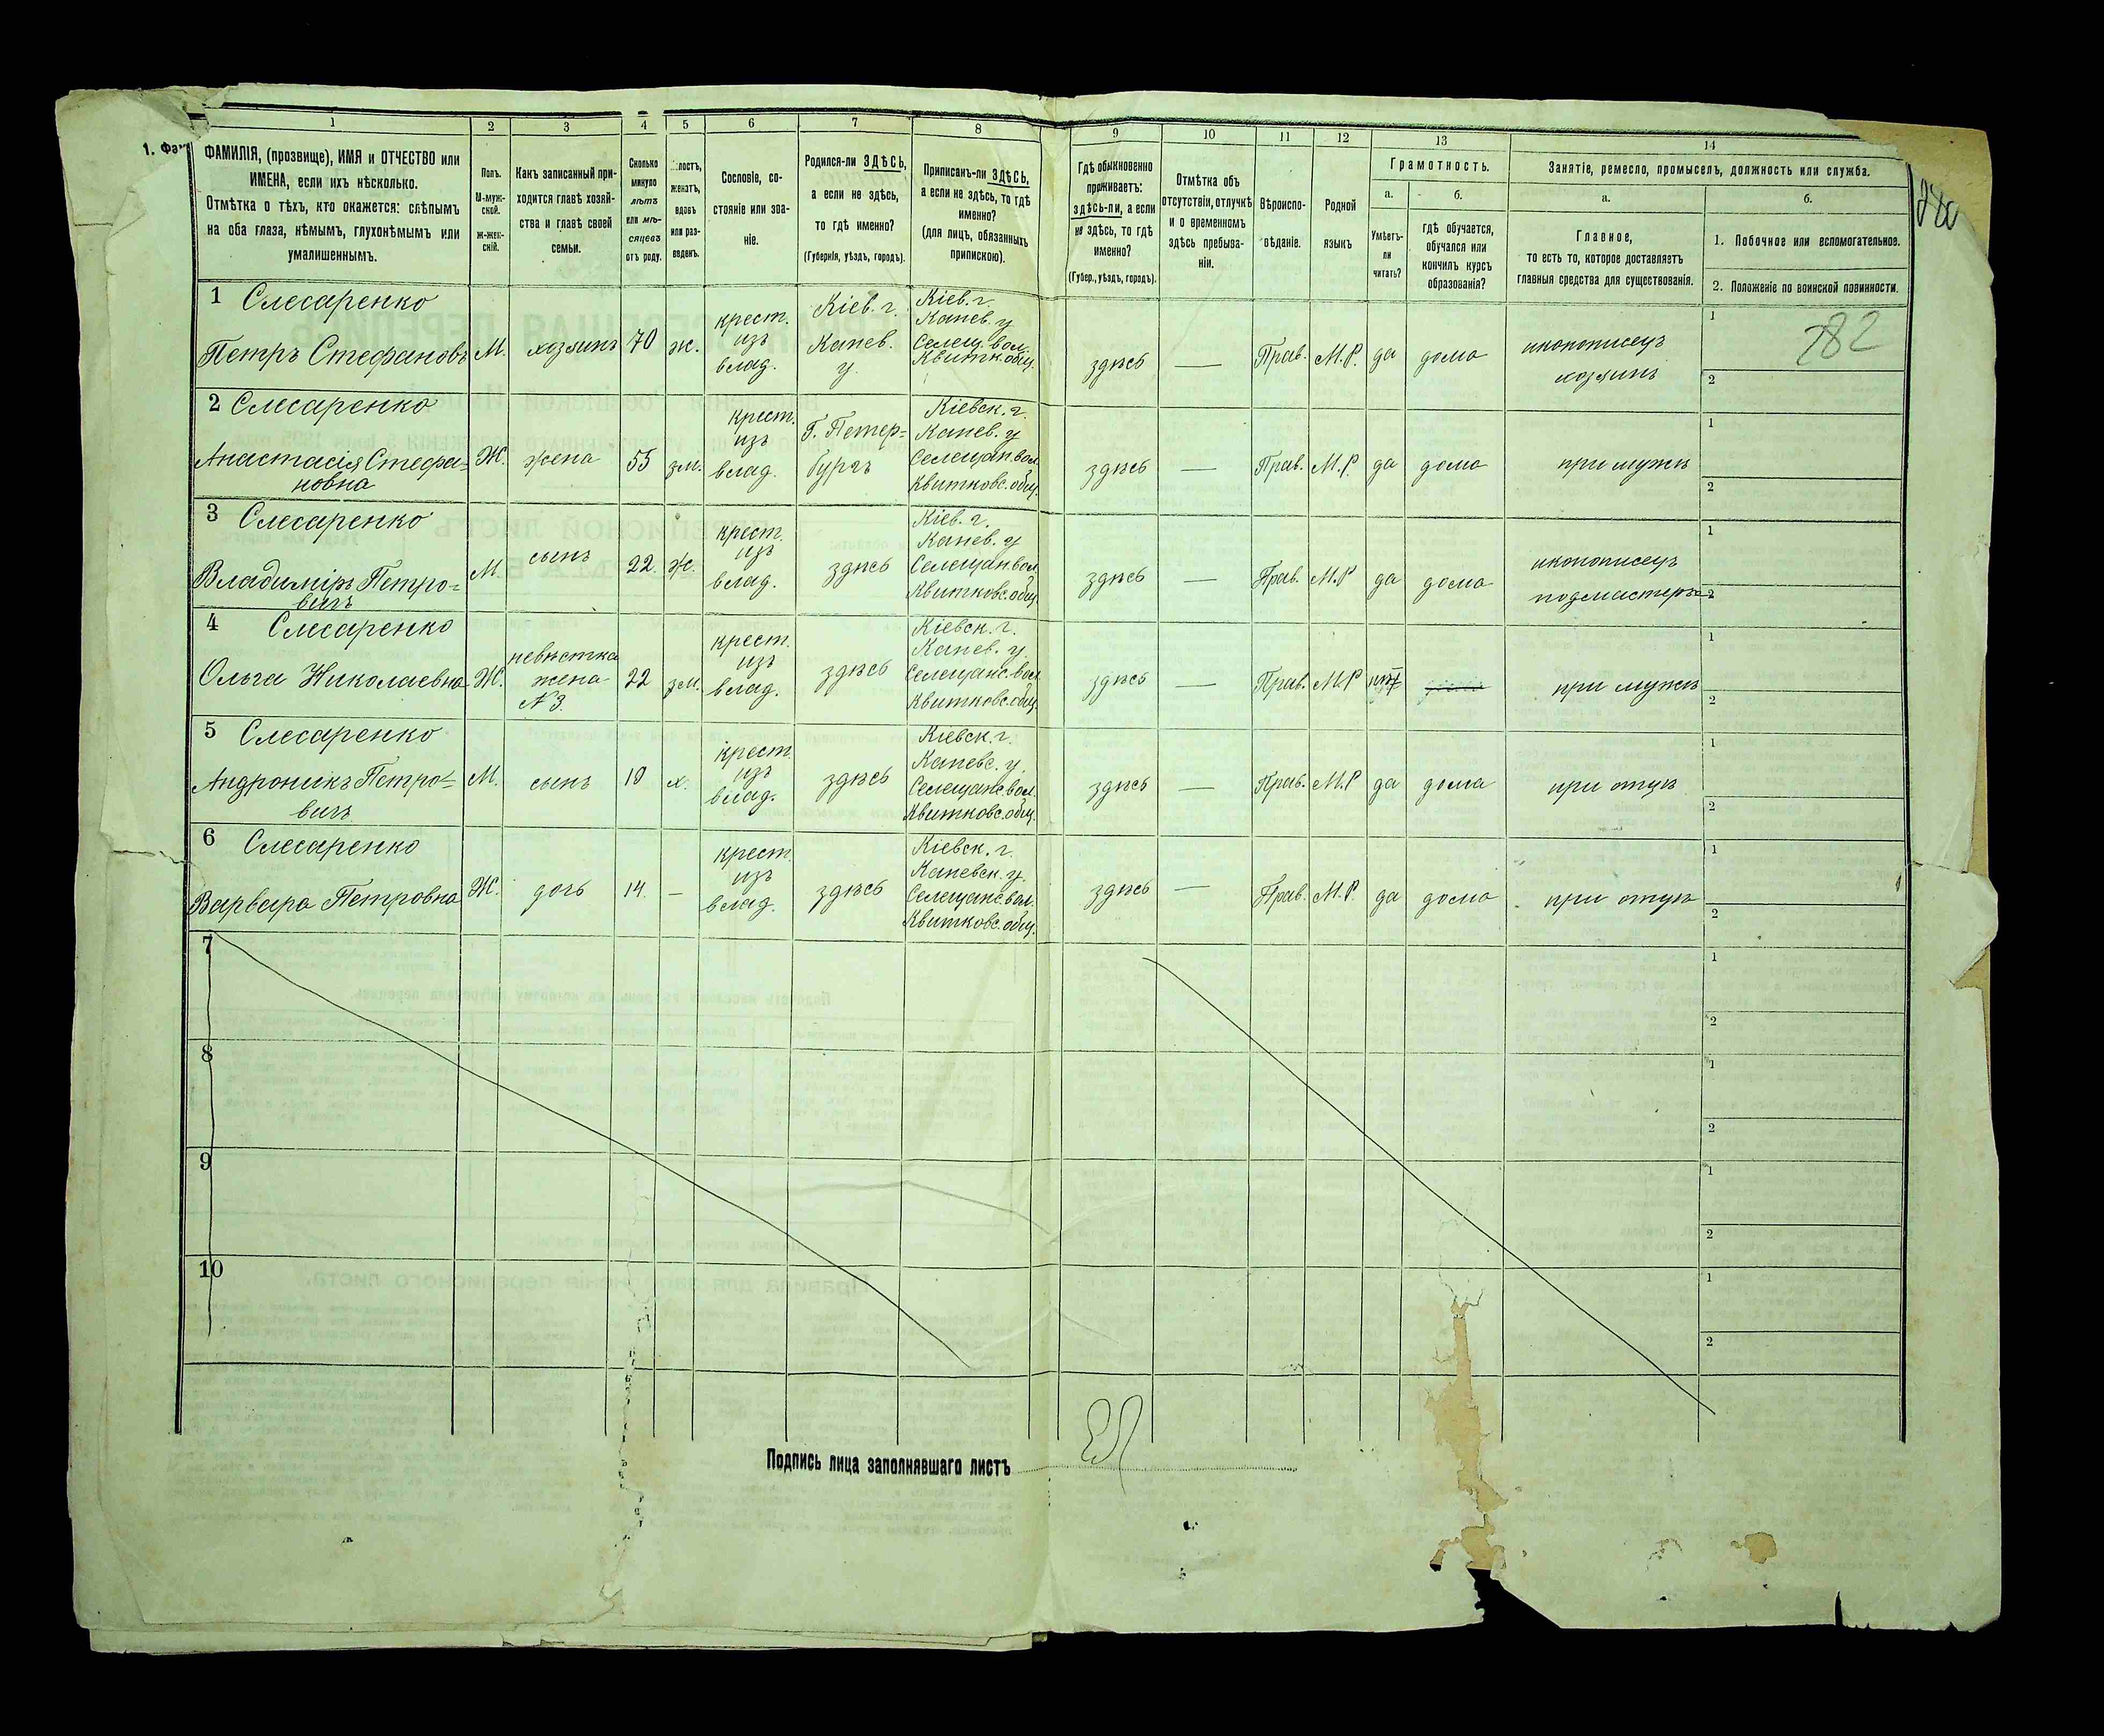 1 2 3 4 5 6 7 8 9 10 11 12 13 14
1. Фа
ФАМИЛІЯ, (прозвище), ИМЯ и ОТЧЕСТВО или
ИМЕНА, если ихъ нѣсколько.
Отмѣтка о тѣхъ, кто окажется: слѣпымъ
на оба глаза, нѣмымъ, глухонѣмымъ или
умалишеннымъ.
Полъ.
М-муж-
ской.
Ж-жен-
скій.
Какъ записанный при-
ходится главѣ хозяй-
ства и главѣ своей
семьи.
Сколько
минуло
лѣтъ
или мѣ-
сяцевъ
отъ роду.
лостъ,
женатъ,
вдовъ
или раз-
веденъ.
Сословіе, со-
стояніе или зва-
ніе.
Родился-ли ЗДѢСЬ,
а если не здѣсь,
то гдѣ именно?
(Губернія, уѣздъ, городъ).
Приписанъ-ли ЗДѢСЬ,
а если не здѣсь, то гдѣ
именно?
(для лицъ, обязанныхъ
припискою).
Гдѣ обыкновенно
проживаетъ:
здѣсь-ли, а если
не здѣсь, то гдѣ
именно?
(Губер., уѣздъ, городъ).
Отмѣтка объ
отсутствіи, отлучкѣ
и о временномъ
здѣсь пребыва-
ніи.
Вѣроиспо-
вѣданіе.
Родной
языкъ
Грамотность.
а.
Умѣетъ-
ли
читать?
б.
гдѣ обучается,
обучался или
кончилъ курсъ
образованія?
Занятіе, ремесло, промыселъ, должность или служба.
а.
Главное,
то есть то, которое доставляетъ
главныя средства для существованія.
б.
1. Побочное или вспомогательное.
2. Положеніе по воинской повинности.
280
282
1 Слесаренко
Петръ Стефановъ
М.
хозяинъ
70
ж.
крест.
изъ
влад.
Кіев. г.
Канев.
у.
Кіев. г.
Канев. у
Селещ. вол.
Квитк. общ.
здѣсь
—
Прав.
М.Р.
да
дома
иконописецъ
хозяинъ
1
2
2 Слесаренко
Анастасія Стефа-
новна
Ж.
жена
55
зм.
крест.
изъ
влад.
Г. Петер=
бургъ
Кіевск. г.
Канев. у
Селещан. вол.
Квитковс. общ.
здѣсь
—
Прав.
М.Р.
да
дома
при мужѣ
1
2
3 Слесаренко
Владиміръ Петро=
вичъ
М.
сынъ
22
ж.
крест.
изъ
влад.
здѣсь
Кіев. г.
Канев. у
Селещан. вол
Квитковс. общ.
здѣсь
—
Прав.
М.Р
да
дома
иконописецъ
подмастерье
1
2
4 Слесаренко
Ольга Николаевна
Ж.
невѣстка
жена
№ 3.
22
зм.
крест.
изъ
влад.
здѣсь
Кіевск. г.
Канев. у.
Селещанс. вол
Квитковс. общ
здѣсь
—
Прав.
М.Р
нѣт
при мужѣ
1
2
5 Слесаренко
Андроникъ Петро=
вичъ
М.
сынъ
18
х.
крест.
изъ
влад.
здѣсь
Кіевск. г.
Каневс. у.
Селещанс. вол.
Квитковс. общ.
здѣсь
—
Прав.
М.Р
да
дома
при отцѣ
1
2
6 Слесаренко
Варвара Петровна
Ж.
дочь
14.
—
крест.
изъ
влад.
здѣсь
Кіевск. г.
Каневск. у.
Селещанс. вол.
Квитковс. общ.
здѣсь
—
Прав.
М.Р.
да
дома
при отцѣ
1
2
7
1
2
8
1
2
9
1
2
10
1
2
Подпись лица заполнявшаго листъ